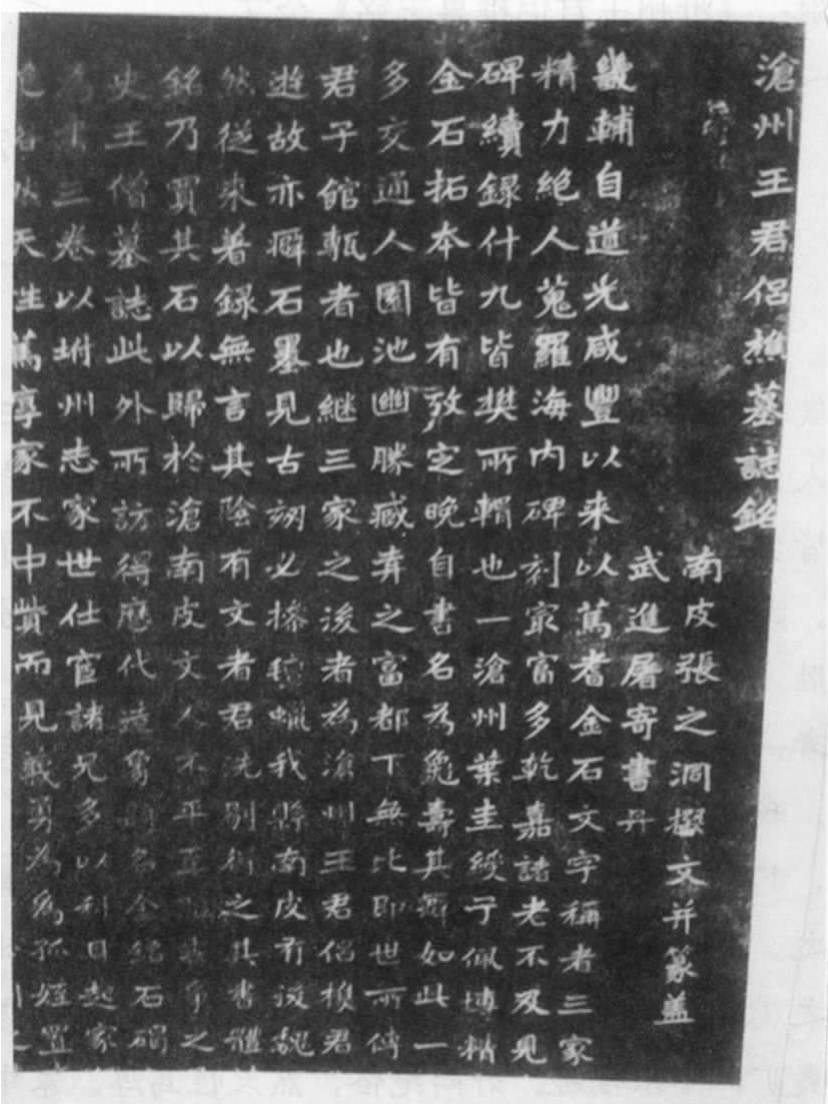 滄州王君侶樵墓誌銘
南皮張之洞撰文并篆蓋
武進屠寄書丹
畿輔自道光咸豐以来以篤耆金石文字稱者三家
精力絕人蒐羅海内碑刻冣富多乾嘉諸老不及見
碑續録什九皆樊所輯也一滄州葉圭綬子佩博精
金石拓本皆有攷定晚自書名為龜壽其癖如此一
多交通人園池幽勝藏弆之富都下無比即世所傳
君子館甎者也継三家之後者為滄州王君侶樵君
遊故亦癖石墨見古刻必搽氊蠟我縣南皮有後魏
然從来著録無言其陰有文者君洗剔衍之其書體
銘乃買其石以歸於滄南皮文人不平互爭之
史王僧墓誌此外所訪得歷代造名金銘石碣
為書三卷以坿州志家世仕宦諸兄多以科目起家
以天性篤厚家不中貲而見義勇為為孤姪置